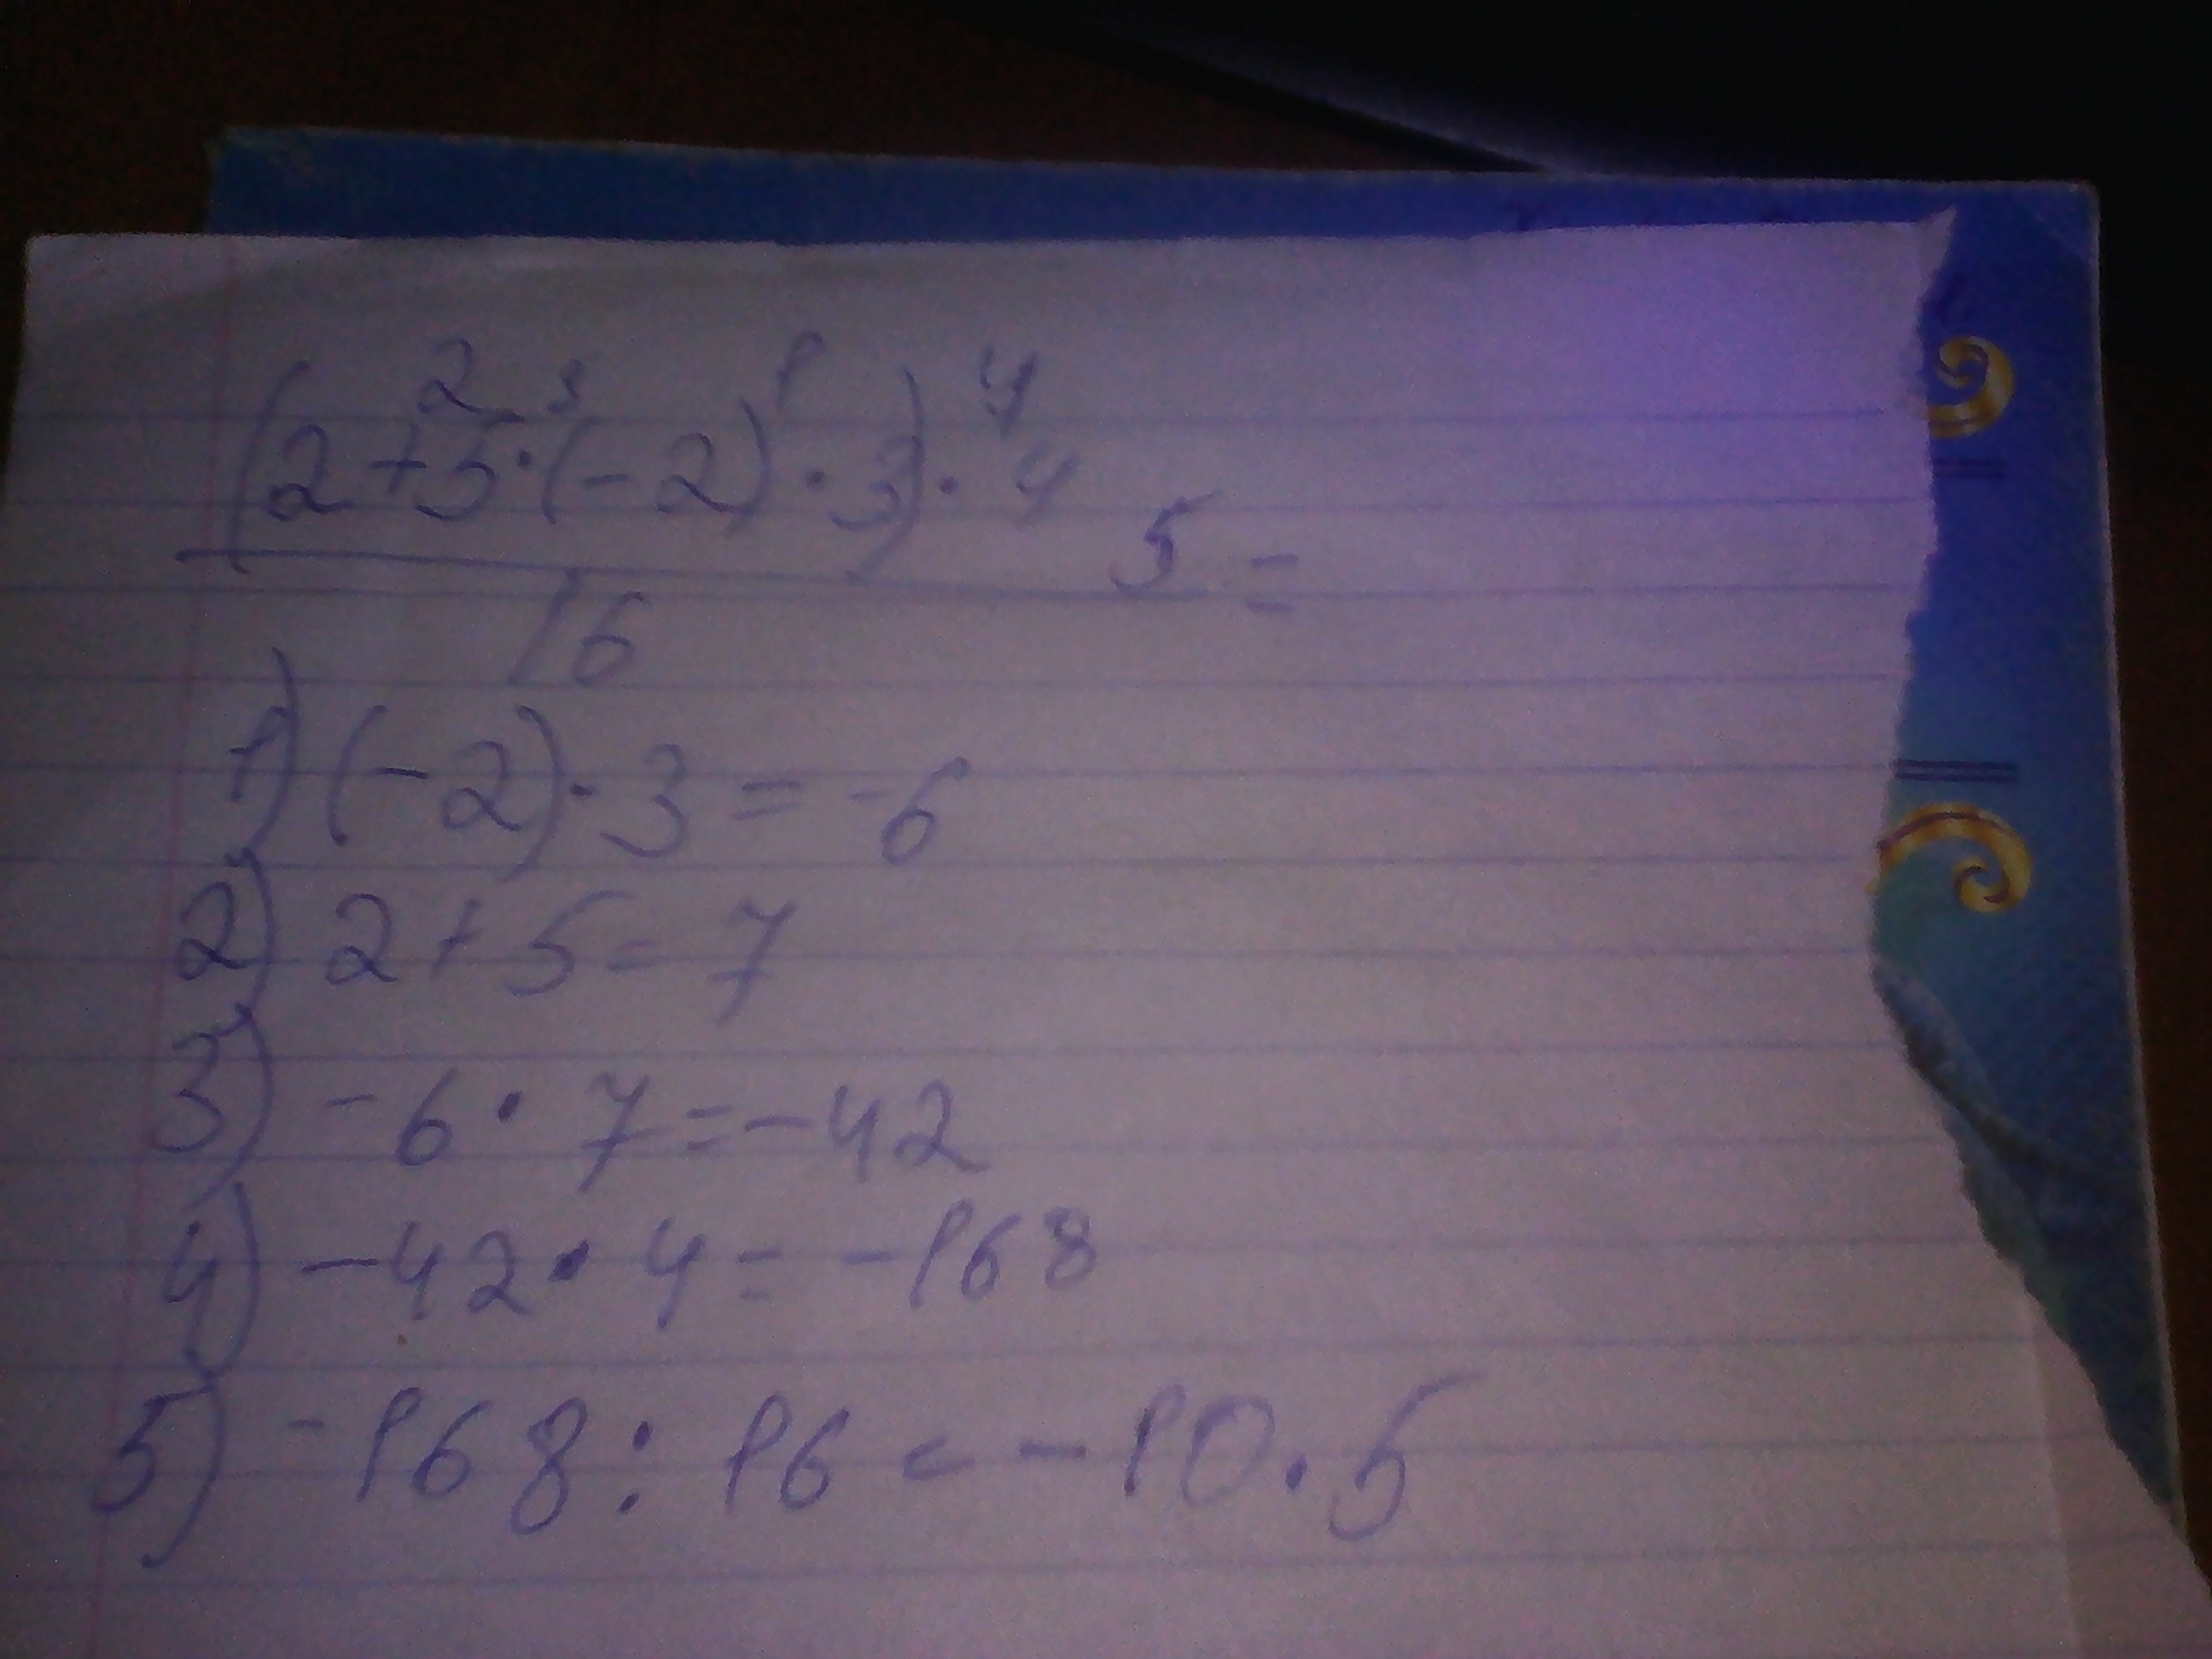 2 3 1 4
(2+5·(-2)·3)·4 5 =
16
1) (-2)·3=-6
2) 2+5=7
3) -6·7=-42
4) -42·4=-168
5) -168:16=-10.5